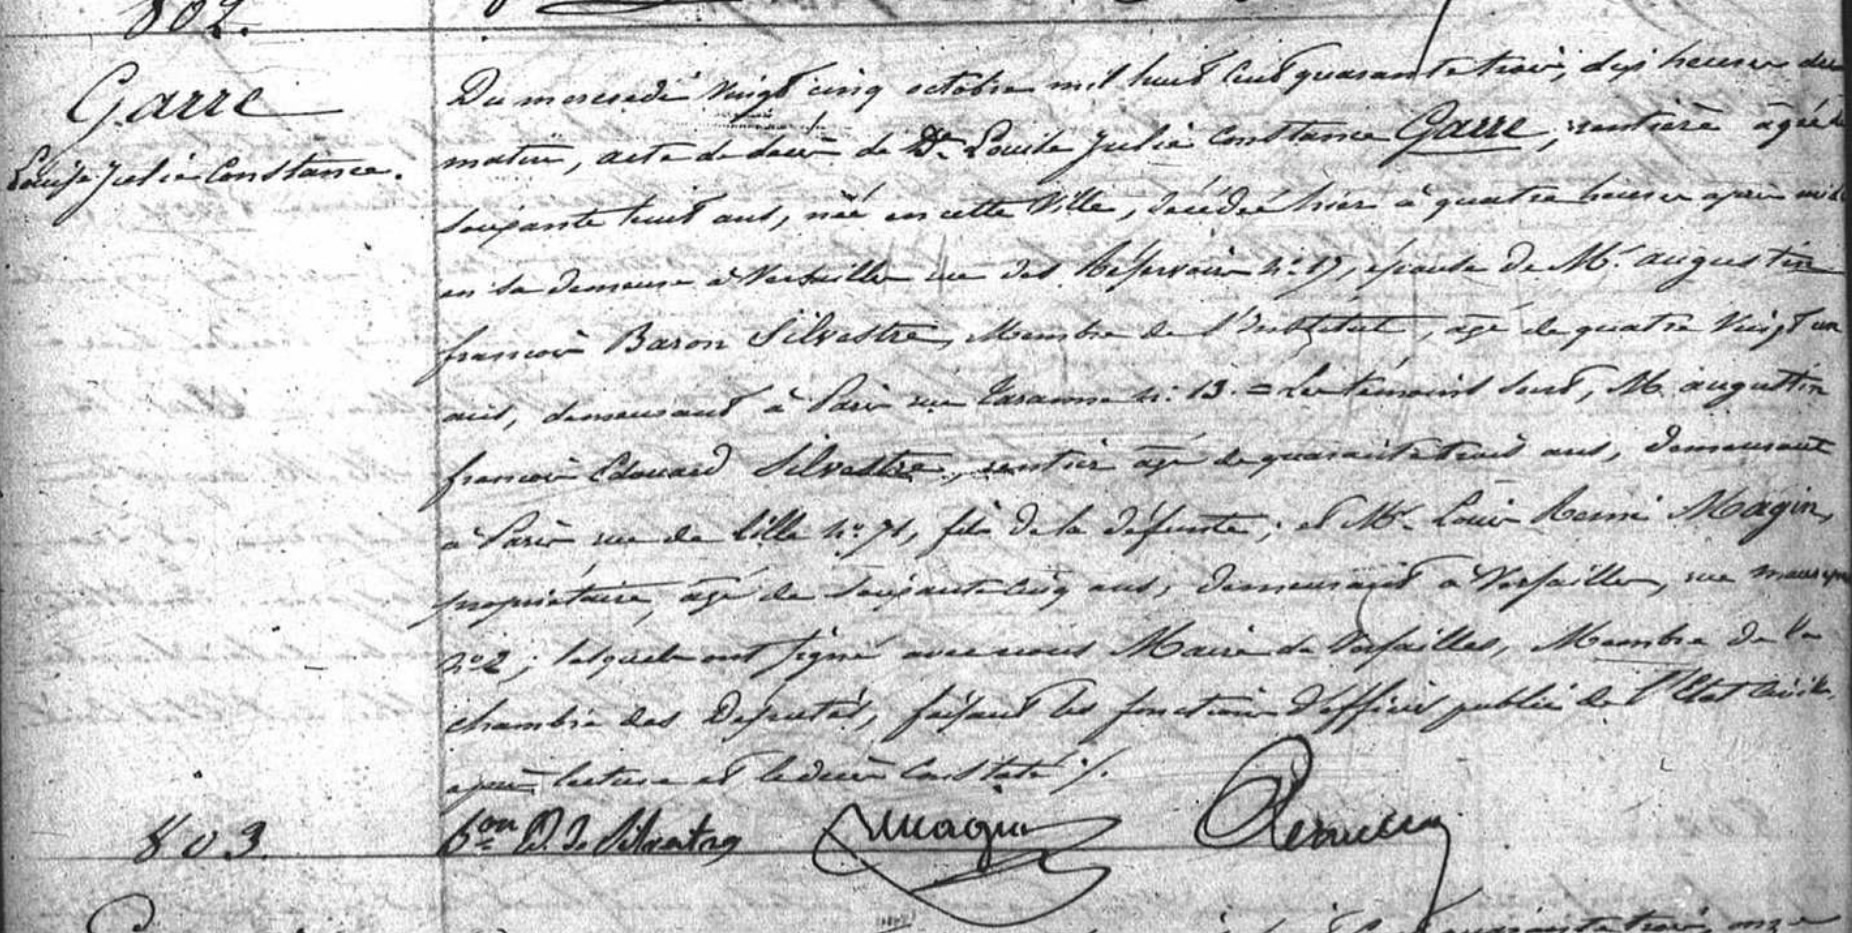 802.
Garre
Louise Julie Constance.
Du mercredi vingt cinq octobre mil huit cent quarante trois, dix heures du
matin, acte de décès de De. Louise Julie Constance Garre, rentière âgée de
soixante huit ans, née en cette Ville, décédée hier à quatre heures après midi
en sa demeure à Versailles rue des Réservoirs no. 17, épouse de Mr. augustin
françois Baron Silvestre, Membre de l'Institut, âgé de quatre Vingt un
ans, demeurant à Paris rue Taranne no. 13. = Les témoins sont, M. augustin
françois Edouard Silvestre, rentier âgé de quarante trois ans, demeurant
à Paris rue de Lille no. 71, fils de la défunte; et Mr. Louis Remi Magin,
propriétaire, âgé de soixante cinq ans, demeurant à Versailles, rue
no. 2; lesquels ont signé avec nous Maire de Versailles, Membre de la
chambre des Députés, faisant les fonctions d'officier public de l'Etat Civil,
après lecture et le décès Constaté ./.
Bon E. de Silvestre Magin Remilly
803.